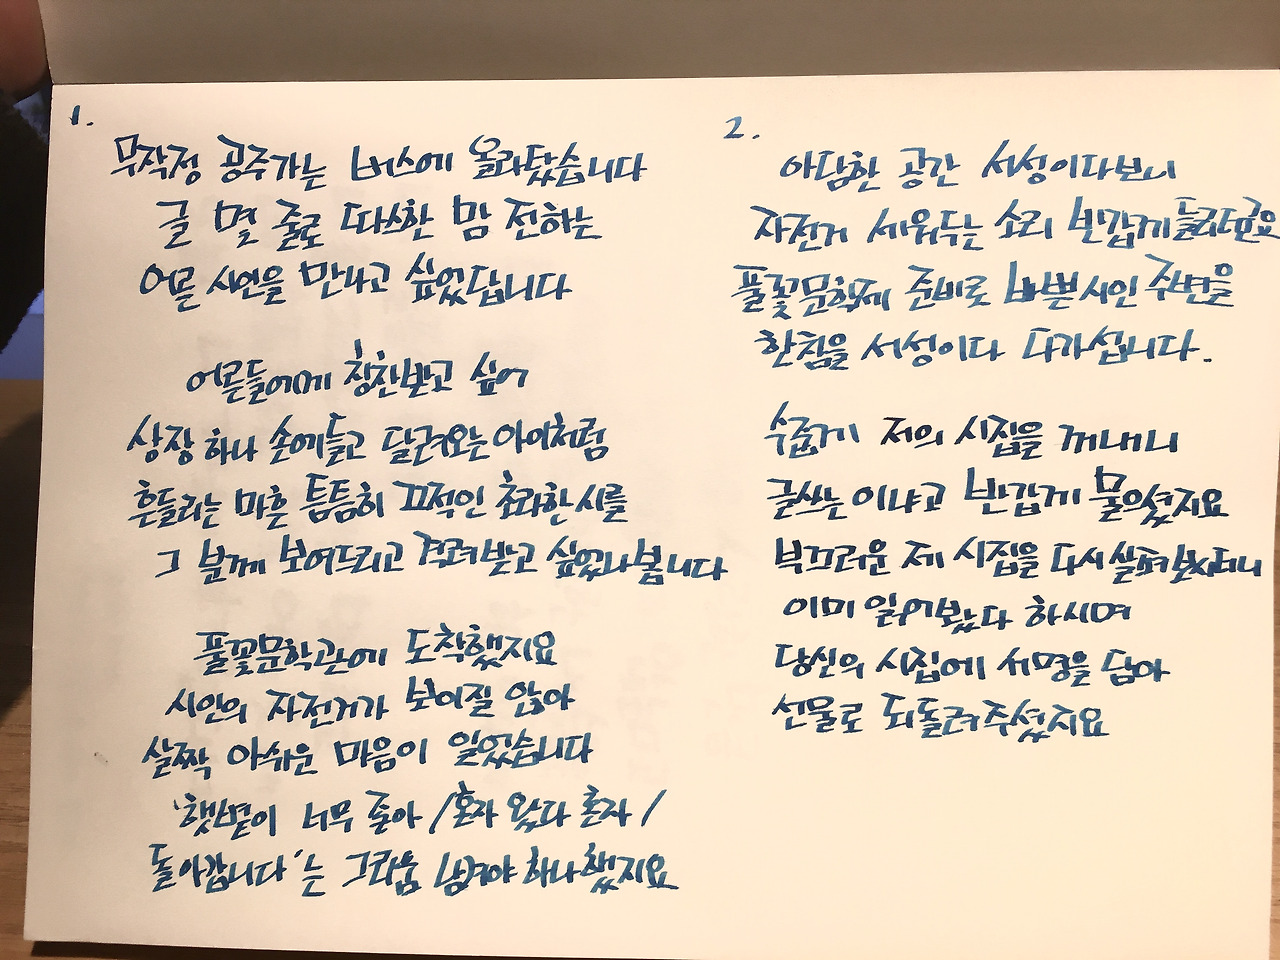 1.
무작정 공주가는 버스에 올라탔습니다
글 몇 줄로 따스한 맘 전하는
어른 시인을 만나고 싶었답니다
어른들에게 칭찬받고 싶어
상장 하나 손에들고 달려오는 아이처럼
흔들리는 마흔 틈틈히 끄적인 초라한 시를
그 분께 보여드리고 격려받고 싶었나봅니다
풀꽃문학관에 도착했지요
시인의 자전거가 보이질 않아
살짝 아쉬운 마음이 일었습니다
'햇볕이 너무 좋아 / 혼자 왔다 혼자 /
돌아갑니다'는 그라움 남겨야 하나했지요
2.
아담한 공간 서성이다보니
자전거 세워두는 소리 반갑게 들리더군요
풀꽃문학제 준비로 바쁜 시인 주변을
한참을 서성이다 다가섭니다.
수줍게 저의 시집을 꺼내니
글쓰는 이냐고 반갑게 물으셨지요
부끄러운 제 시집을 다시 살펴보시더니
이미 읽어봤다 하시며
당신의 시집에 서명을 담아
선물로 되돌려주셨지요